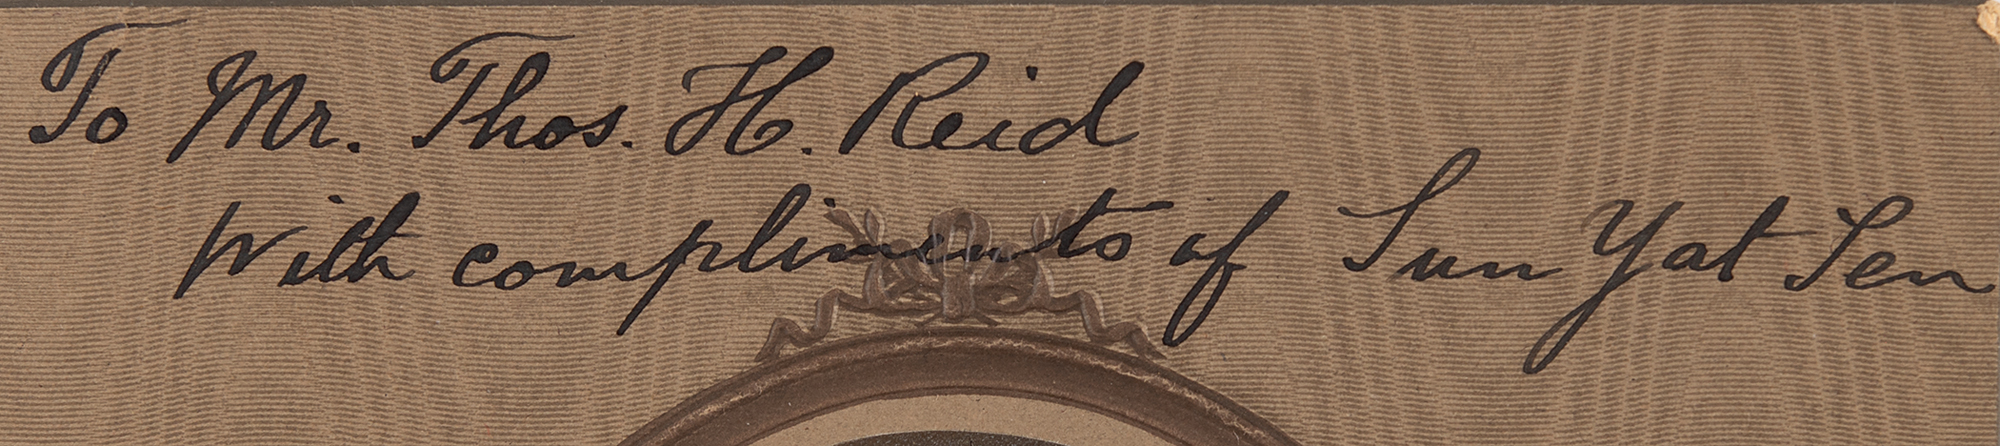 To Mr. Thos. H. Reid
With compliments of Sun Yat Sen